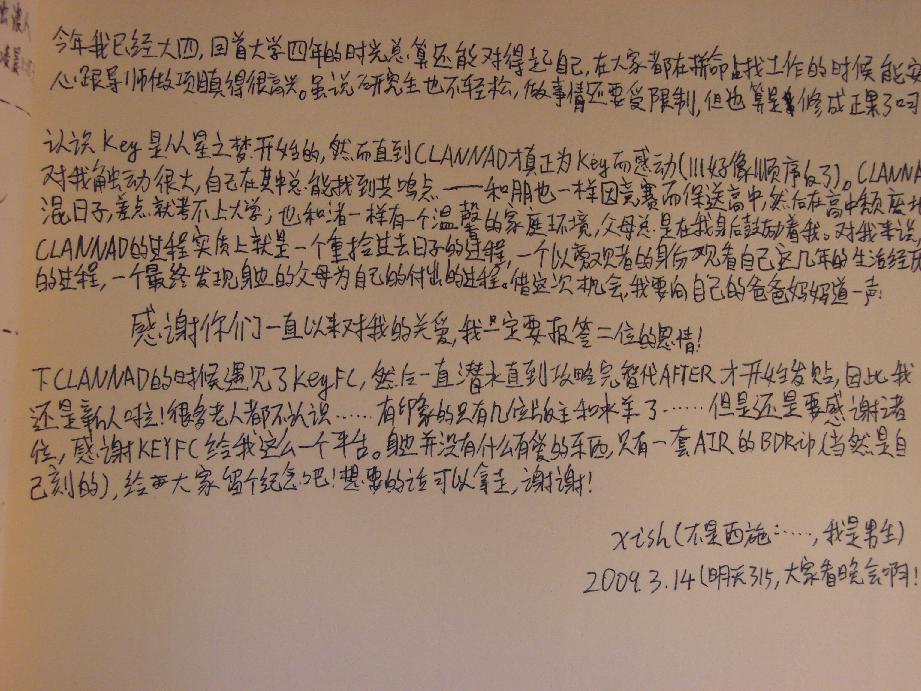 今年我已经大四,回首大学四年的时光总算还能对得起自己,在大家都在拼命占找工作的时候能安
心跟导师做项目真得很高兴。虽说研究生也不轻松,做事情还要受限制,但也算是修成正果了吧
认识Key是从星之梦开始的,然而直到CLANNAD才真正为Key而感动(!!!好像顺序反了)。CLANNA
对我触动很大,自己在其中总能找到共鸣点——和朋也一样因竞赛而保送高中,然后在高中颓废地
混日子,差点就考不上大学;也和渚一样有一个温馨的家庭环境,父母总是在我身后鼓励着我。对我来说,
CLANNAD的过程实质上就是一个重拾过去日子的过程,一个以旁观者的身份观看自己这几年的生活经历
的过程,一个最终发现身边的父母为自己的付出的过程。借这次机会,我要向自己的爸爸妈妈道一声:
感谢你们一直以来对我的关爱,我一定要报答二位的恩情!
下CLANNAD的时候遇见了KeyFC,然后一直潜水直到攻略完智代AFTER才开始发贴,因此我
还是新人啦!很多老人都不认识……有印象的只有几位版主和水羊了……但是还是要感谢诸
位,感谢KEYFC给我这么一个平台。身边并没有什么有爱的东西,只有一套AIR的BDRip(当然是自
己刻的),给大家留个纪念吧!想要的话可以拿走,谢谢!
xish(不是西施……,我是男生)
2009.3.14(明天315,大家看晚会啊!